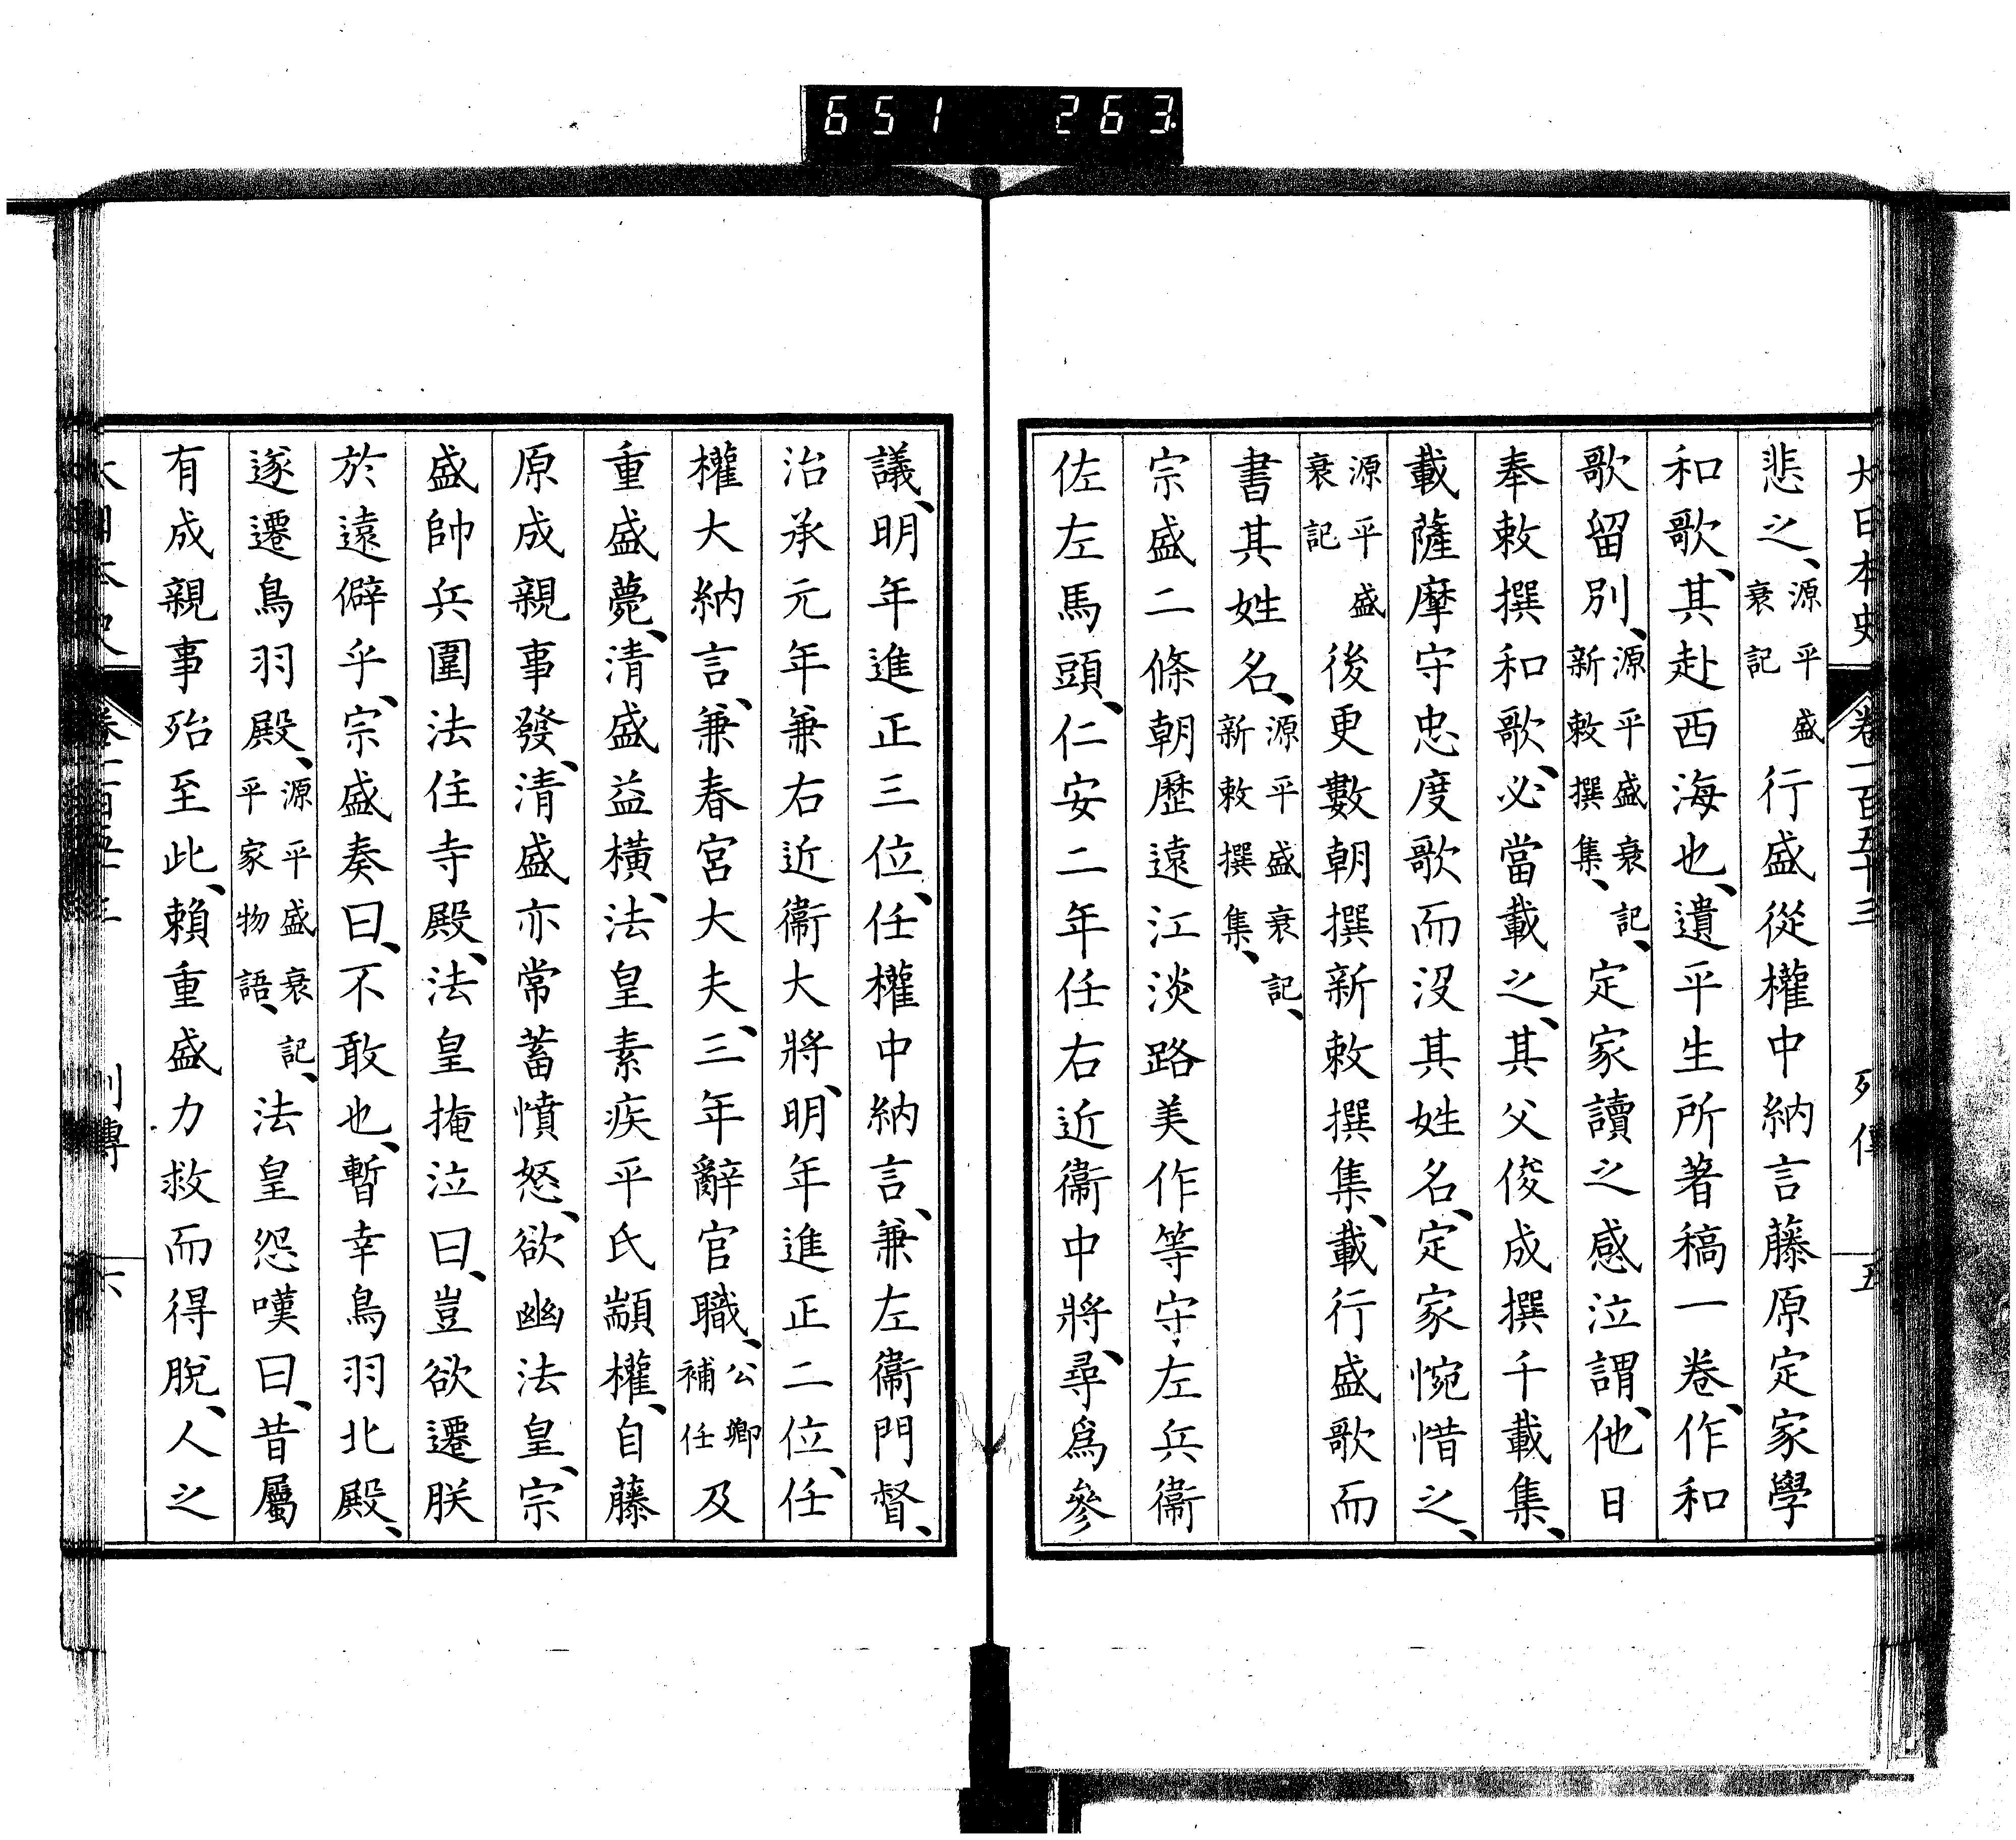 651 263
大日本史 卷一百五十三 列傳 五
悲之、源平盛衰記行盛從權中納言藤原定家學
和歌、其赴西海也、遺平生所著稿一卷、作和
歌留別、源平盛衰記、新敕撰集、定家讀之感泣謂、他日
奉敕撰和歌、必當載之、其父俊成撰千載集、
載薩摩守忠度歌而沒其姓名、定家惋惜之、
源平盛衰記後更數朝撰新敕撰集、載行盛歌而
書其姓名、源平盛衰記、新敕撰集、
宗盛二條朝歷遠江淡路美作等守左兵衞
佐左馬頭、仁安二年任右近衞中將、尋爲參
議、明年進正三位、任權中納言、兼左衞門督、
治承元年兼右近衞大將、明年進正二位、任
權大納言、兼春宮大夫、三年辭官職、公卿補任及
重盛薨、清盛益橫、法皇素疾平氏顓權、自藤
原成親事發、清盛亦常蓄憤怒、欲幽法皇、宗
盛帥兵圍法住寺殿、法皇掩泣曰、豈欲遷朕
於遠僻乎、宗盛奏曰、不敢也、暫幸鳥羽北殿、
遂遷鳥羽殿、源平盛衰記、平家物語、法皇怨嘆曰、昔屬
有成親事殆至此、賴重盛力救而得脫、人之
列傳 六